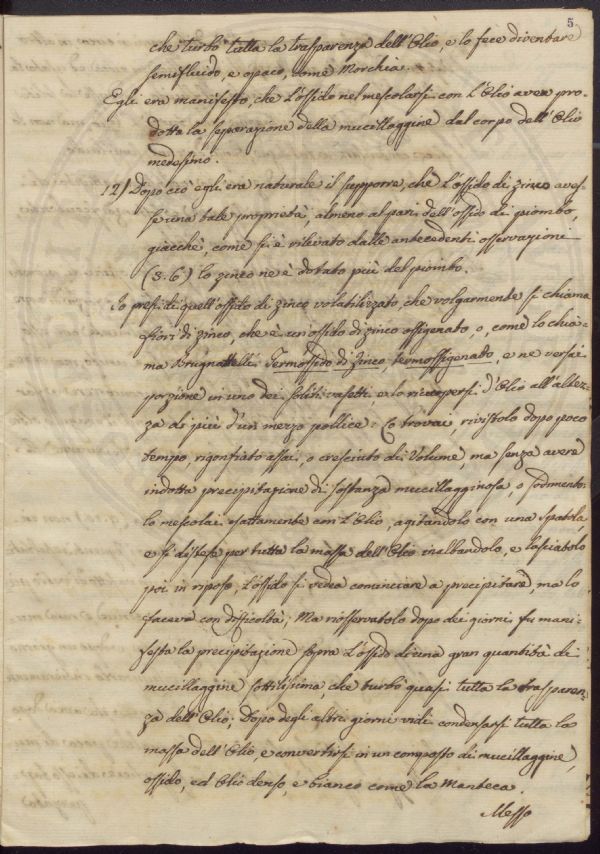 5
che turbò tutta la trasparenza dell'Olio, e lo fece diventare
semifluido, e opaco, come Morchia.
Egli era manifesto, che l'ossido nel mescolarsi con l'Olio avea pro-
dotta la separazione della mucillaggine dal corpo dell'Olio
medesimo.
12) Dopo ciò egli era naturale il supporre, che l'ossido di zinco aves-
se una tale proprietà, almeno al pari dell'ossido di piombo,
giacchè, come si è rilevato dalle antecedenti osservazioni
(3.6) lo zinco ne è dotato più del piombo.
Io presi di quell'ossido di zinco volatilizzato, che volgarmente si chiama
fiori di zinco, che è un ossido di zinco ossigenato, o, come lo chia-
ma Brugnattelli: Termossido di Zinco, termossigenato, e ne versai
porzione in uno dei soliti vasetti, e lo ricopersi d'Olio all'altez-
za di più d'un mezzo pollice: Lo trovai, rivistolo dopo poco
tempo, rigonfiato assai, o cresciuto di Volume, ma senza avere
indotta precipitazione di sostanza mucillagginosa, o sedimento:
lo mescolai esattamente con l'Olio, agitandolo con una spatola,
e si distese per tutta la massa dell'Olio inalbandolo, e lasciatolo
poi in riposo, l'ossido si vedea cominciare a precipitare, ma lo
faceva con difficoltà; Ma riosservatolo dopo dei giorni fu mani-
festa la precipitazione sopra l'ossido di una gran quantità di
mucillaggine sottilissima che turbò quasi tutta la trasparen-
za dell'Olio; Dopo degli altri giorni vidi condensarsi tutta la
massa dell'Olio, e convertirsi in un composto di mucillaggine,
ossido, ed Olio denso, e bianco come la Manteca.
Messo